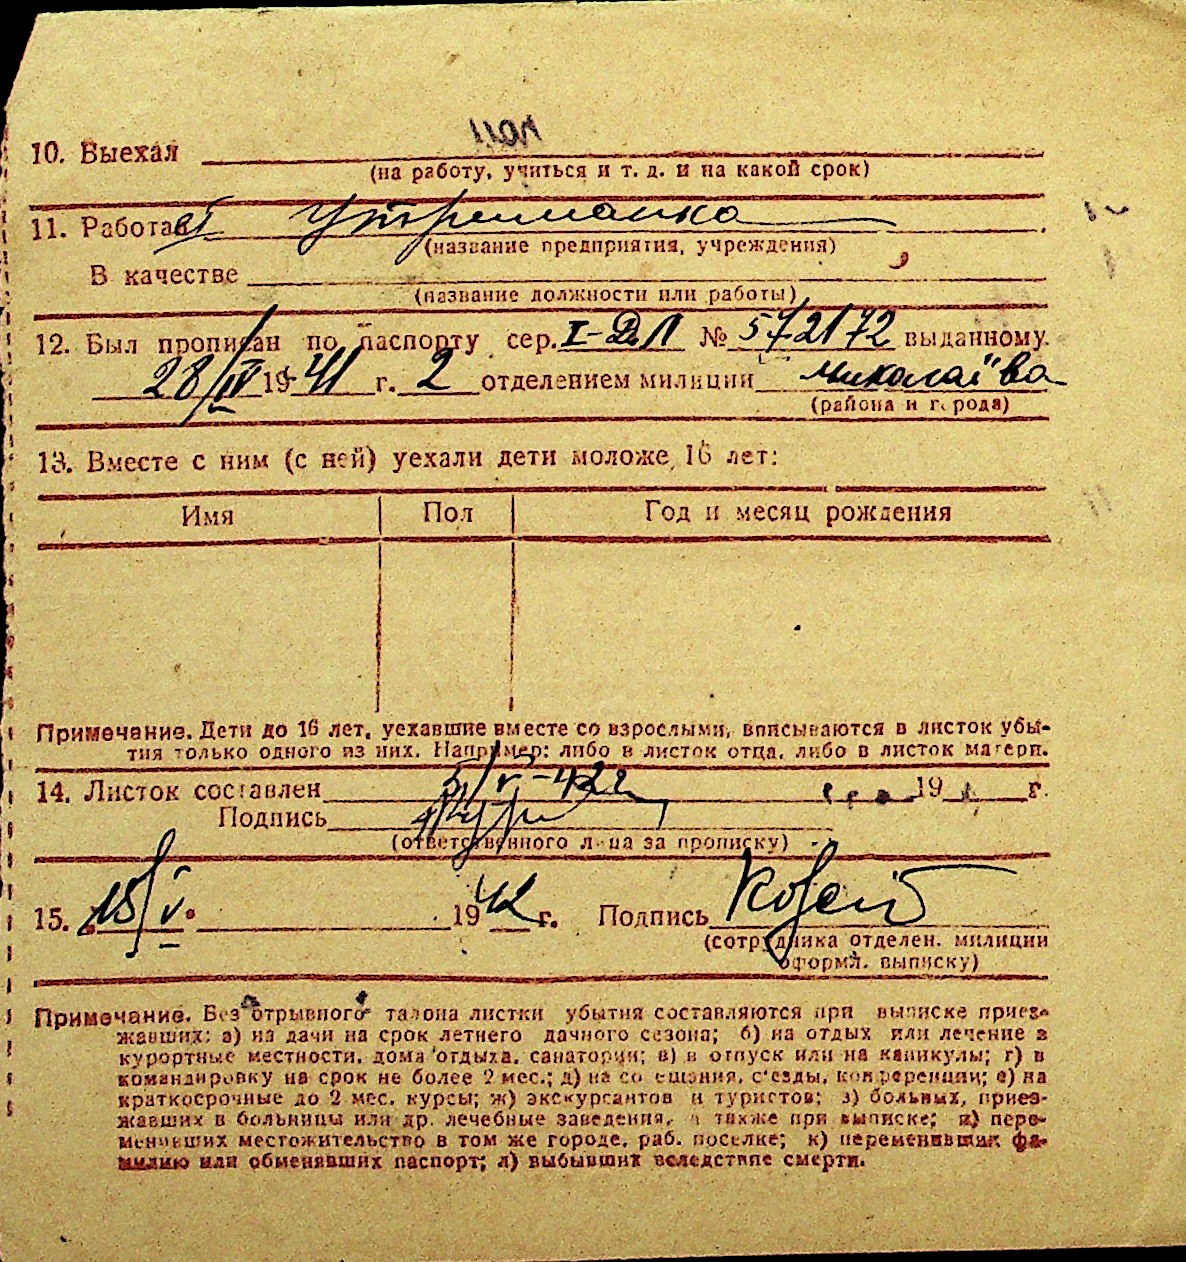 10. Выехал
(на работу, учиться и т. д. и на какой срок)
11. Работает Утриманка
(название предприятия, учреждения)
В качестве
(название должности или работы)
12. Был прописан по паспорту сер. I-ДЛ № 572172 выданному
28/IV 1941 г. 2 отделением милиции Миколаїва
(района и города)
13. Вместе с ним (с ней) уехали дети моложе 16 лет:
Имя Пол Год и месяц рождения
Примечание. Дети до 16 лет, уехавшие вместе со взрослыми, вписываются в листок убы-
тия только одного из них. Например: либо в листок отца, либо в листок матери.
14. Листок составлен 5/V-42г 19 г.
Подпись
(ответственного лица за прописку)
15. 15/V 1942 г. Подпись
(сотрудника отделен. милиции
оформл. выписку)
Примечание. Без отрывного талона листки убытия составляются при выписке приез-
жавших: а) на дачи на срок летнего дачного сезона; б) на отдых или лечение в
курортные местности, дома отдыха, санатории; в) в отпуск или на каникулы; г) в
командировку на срок не более 2 мес.; д) на совещания, с'езды, конференции; е) на
краткосрочные до 2 мес. курсы; ж) экскурсантов и туристов; з) больных, приез-
жавших в больницы или др. лечебные заведения, а также при выписке; и) пере-
менивших местожительство в том же городе, раб. поселке; к) переменивших фа-
милию или обменявших паспорт; л) выбывших вследствие смерти.